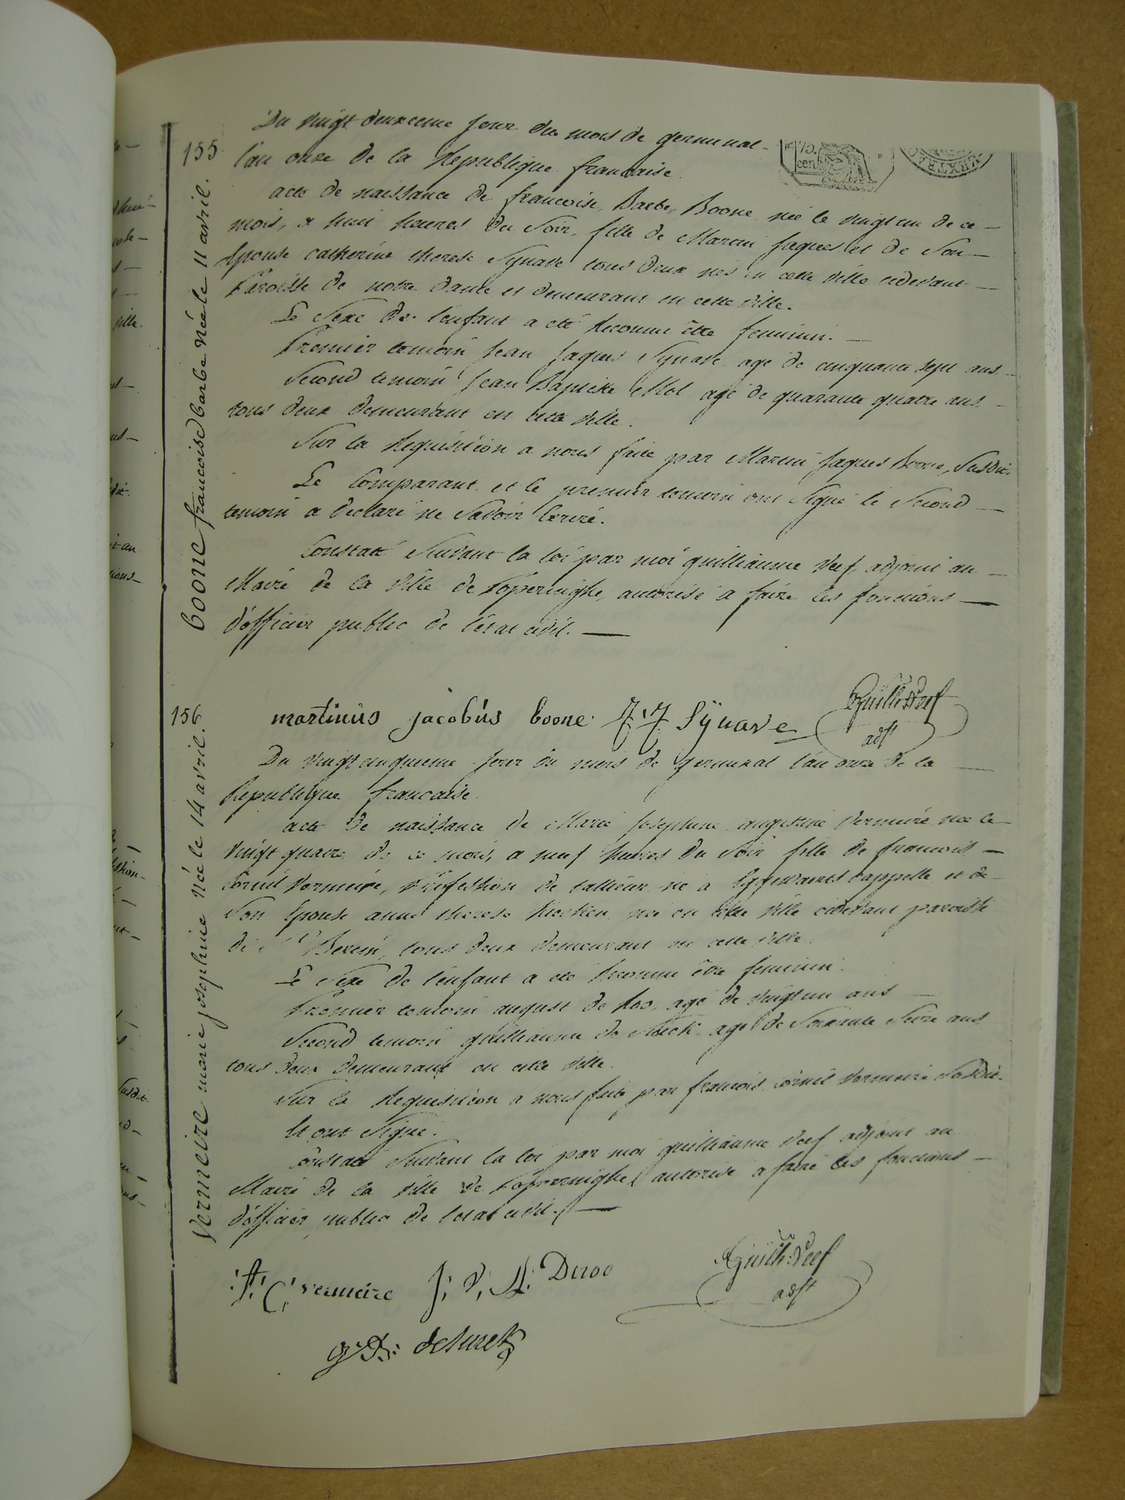 Du vingt deuxieme jour du mois de germinal
155
l'an onze de la Republique francaise.
75.
cen.
boone francoise barbe née le 11 avril.
acte de naissance de francoise Barbe Boone née le vingt un de ce
mois, a huit heures du Soir, fille de Martin Jaques et de Son
Epouse catherine therese Synave tous deux nés en cette ville cidevant
Paroisse de notre dame et demeurant en cette ville.
Le Sexe de l'enfant a eté Reconnu être feminin.
Premier temoin Jean Jaques Synave agé de cinquante sept ans
Second temoin Jean Baptiste Mol agé de quarante quatre ans
tous deux demeurant en cette ville.
Sur la Requisition a nous faite par Martin Jaques Boone, Susdit
Le Comparant et le premier temoin ont Signé le Second
temoin a declaré ne Savoir Ecrire.
Constaté Suivant la loi par moi guilliaume Neef adjoint au
Maire de la Ville de Poperinghe, autorisé a faire les fonctions
d'officier public de l'etat civil.
martinus jacobus boone J: J Sÿnave Guill: Neef
adjt
156
Vermeire marie josephine Née le 14 avril.
Du vingt cinquieme jour du mois de germinal l'an onze de la
Republique francaise.
acte de naissance de Marie Josephine augustine Vermeire née le
Vingt quatre de ce mois, a neuf heures du Soir fille de francois
Cornil Vermeire, Proffession de tallieur né a cappelle et de
Son Epouse anne therese née en cette ville cidevant paroisse
de St Bertin, tous deux demeurant en cette ville.
Le Sexe de l'enfant a eté Reconnu être feminin.
Premier temoin august de Roo agé de vingt un ans
Second temoin guilliaume de agé de Soixante Seize ans
tous deux demeurant en cette ville.
Sur la Requisition a nous faite par francois Cornil Vermeire Susdit
Et ont Signé.
Constaté Suivant la loi par moi guilliaume Neef adjoint au
Maire de la Ville de Poperinghe, autorisé a faire les fonctions
d'officier public de l'etat civil.
F: C: vermeire J: A: Deroo Guill: Neef
adjt